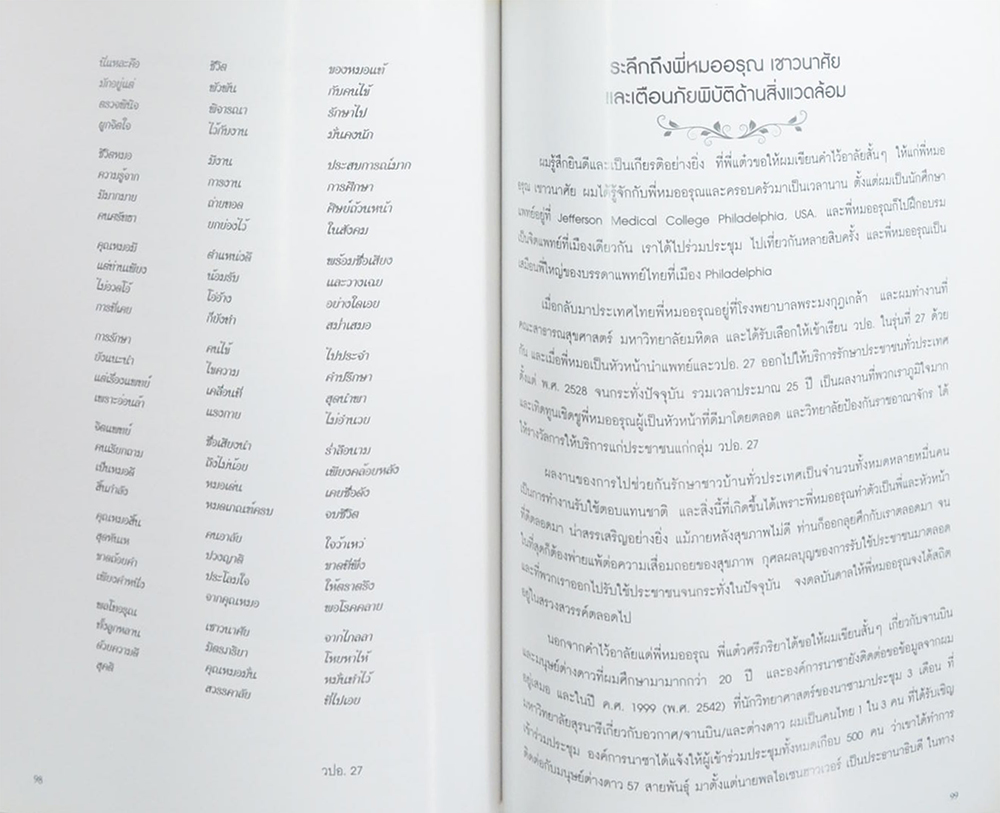 นี่แหละคือ ชีวิต ของหมอแท้
มักอยู่แต่ พัวพัน กับคนไข้
ตรวจพินิจ พิจารณา รักษาไป
ผูกจิตใจ ไว้กับงาน มั่นคงนัก
ชีวิตหมอ มีงาน ประสบการณ์มาก
ความรู้จาก การงาน การศึกษา
มีมากมาย ถ่ายทอด ศิษย์ถ้วนหน้า
คนศรัทธา ยกย่องไว้ ในสังคม
คุณหมอมี ตำแหน่งดี พร้อมชื่อเสียง
แต่ท่านเพียง น้อมรับ และวางเฉย
ไม่อวดโอ้ โอ่อ้าง อย่างใดเลย
การที่เคย ก็ยังทำ สม่ำเสมอ
การรักษา คนไข้ ไปประจำ
ยังแนะนำ ไขความ คำปรึกษา
แต่เรื่องแพทย์ เคลื่อนที่ สุดนำพา
เพราะอ่อนล้า แรงกาย ไม่อำนวย
จิตแพทย์ ชื่อเสียงนำ ร่ำลือนาม
คนเรียกถาม ถึงไม่น้อย เพียงคล้อยหลัง
เป็นหมอดี หมอเด่น เคยชื่อดัง
สิ้นกำลัง หมดเกณฑ์ครบ จบชีวิต
คุณหมอสิ้น คนอาลัย ใจว้าเหว่
สุดหันเห ปวงญาติ ขาดที่พึ่ง
ขาดถ้อยคำ ประโลมใจ ให้ตราตรึง
เพียงคำหนึ่ง จากคุณหมอ พอโรคคลาย
พอโพธรุณ เชาวนาศัย จากไกลลา
ทั้งลูกหลาน มิตรมาริยา โหยหาไห้
ด้วยความดี คุณหมอมั่น หมั่นทำไว้
สุคติ สวรรคาลัย ที่ไปเอย
วปอ. 27
98
ระลึกถึงพี่หมออรุณ เชาวนาศัย
และเตือนภัยพิบัติด้านสิ่งแวดล้อม
ผมรู้สึกยินดีและเป็นเกียรติอย่างยิ่ง ที่พี่แต๋วขอให้ผมเขียนคำไว้อาลัยสั้นๆ ให้แก่พี่หมอ
อรุณ เชาวนาศัย ผมได้รู้จักกับพี่หมออรุณและครอบครัวมาเป็นเวลานาน ตั้งแต่ผมเป็นนักศึกษา
แพทย์อยู่ที่ Jefferson Medical College Philadelphia, USA. และพี่หมออรุณก็ไปฝึกอบรม
เป็นจิตแพทย์ที่เมืองเดียวกัน เราได้ไปร่วมประชุม ไปเที่ยวกันหลายสิบครั้ง และพี่หมออรุณเป็น
เสมือนพี่ใหญ่ของบรรดาแพทย์ไทยที่เมือง Philadelphia
เมื่อกลับมาประเทศไทยพี่หมออรุณอยู่ที่โรงพยาบาลพระมงกุฎเกล้า และผมทำงานที่
คณะสาธารณสุขศาสตร์ มหาวิทยาลัยมหิดล และได้รับเลือกให้เข้าเรียน วปอ. ในรุ่นที่ 27 ด้วย
กัน และเมื่อพี่หมอเป็นหัวหน้านำแพทย์และวปอ. 27 ออกไปให้บริการรักษาประชาชนทั่วประเทศ
ตั้งแต่ พ.ศ. 2528 จนกระทั่งปัจจุบัน รวมเวลาประมาณ 25 ปี เป็นผลงานที่พวกเราภูมิใจมาก
และเทิดทูนเชิดชูพี่หมออรุณผู้เป็นหัวหน้าที่ดีมาโดยตลอด และวิทยาลัยป้องกันราชอาณาจักร ได้
ให้รางวัลการให้บริการแก่ประชาชนแก่กลุ่ม วปอ. 27
ผลงานของการไปช่วยกันรักษาชาวบ้านทั่วประเทศเป็นจำนวนทั้งหมดหลายหมื่นคน
เป็นการทำงานรับใช้ตอบแทนชาติ และสิ่งนี้ที่เกิดขึ้นได้เพราะพี่หมออรุณทำตัวเป็นพี่และหัวหน้า
ที่ดีตลอดมา น่าสรรเสริญอย่างยิ่ง แม้ภายหลังสุขภาพไม่ดี ท่านก็ออกลุยศึกกับเราตลอดมา จน
ในที่สุดก็ต้องพ่ายแพ้ต่อความเสื่อมถอยของสุขภาพ กุศลผลบุญของการรับใช้ประชาชนมาตลอด
และที่พวกเราออกไปรับใช้ประชาชนจนกระทั่งในปัจจุบัน จงดลบันดาลให้พี่หมออรุณจงได้สถิต
อยู่ในสรวงสวรรค์ตลอดไป
นอกจากคำไว้อาลัยแด่พี่หมออรุณ พี่แต๋วศรีภริยาได้ขอให้ผมเขียนสั้นๆ เกี่ยวกับจานบิน
และมนุษย์ต่างดาวที่ผมศึกษามามากกว่า 20 ปี และองค์การนาซายังติดต่อขอข้อมูลจากผม
อยู่เสมอ และในปี ค.ศ. 1999 (พ.ศ. 2542) ที่นักวิทยาศาสตร์ของนาซามาประชุม 3 เดือน ที่
มหาวิทยาลัยสุรนารีเกี่ยวกับอวกาศ/จานบิน/และต่างดาว ผมเป็นคนไทย 1 ใน 3 คน ที่ได้รับเชิญ
เข้าร่วมประชุม องค์การนาซาได้แจ้งให้ผู้เข้าร่วมประชุมทั้งหมดเกือบ 500 คน ว่าเขาได้ทำการ
ติดต่อกับมนุษย์ต่างดาว 57 สายพันธุ์ มาตั้งแต่นายพลไอเซนฮาวเวอร์ เป็นประธานาธิบดี ในทาง
99